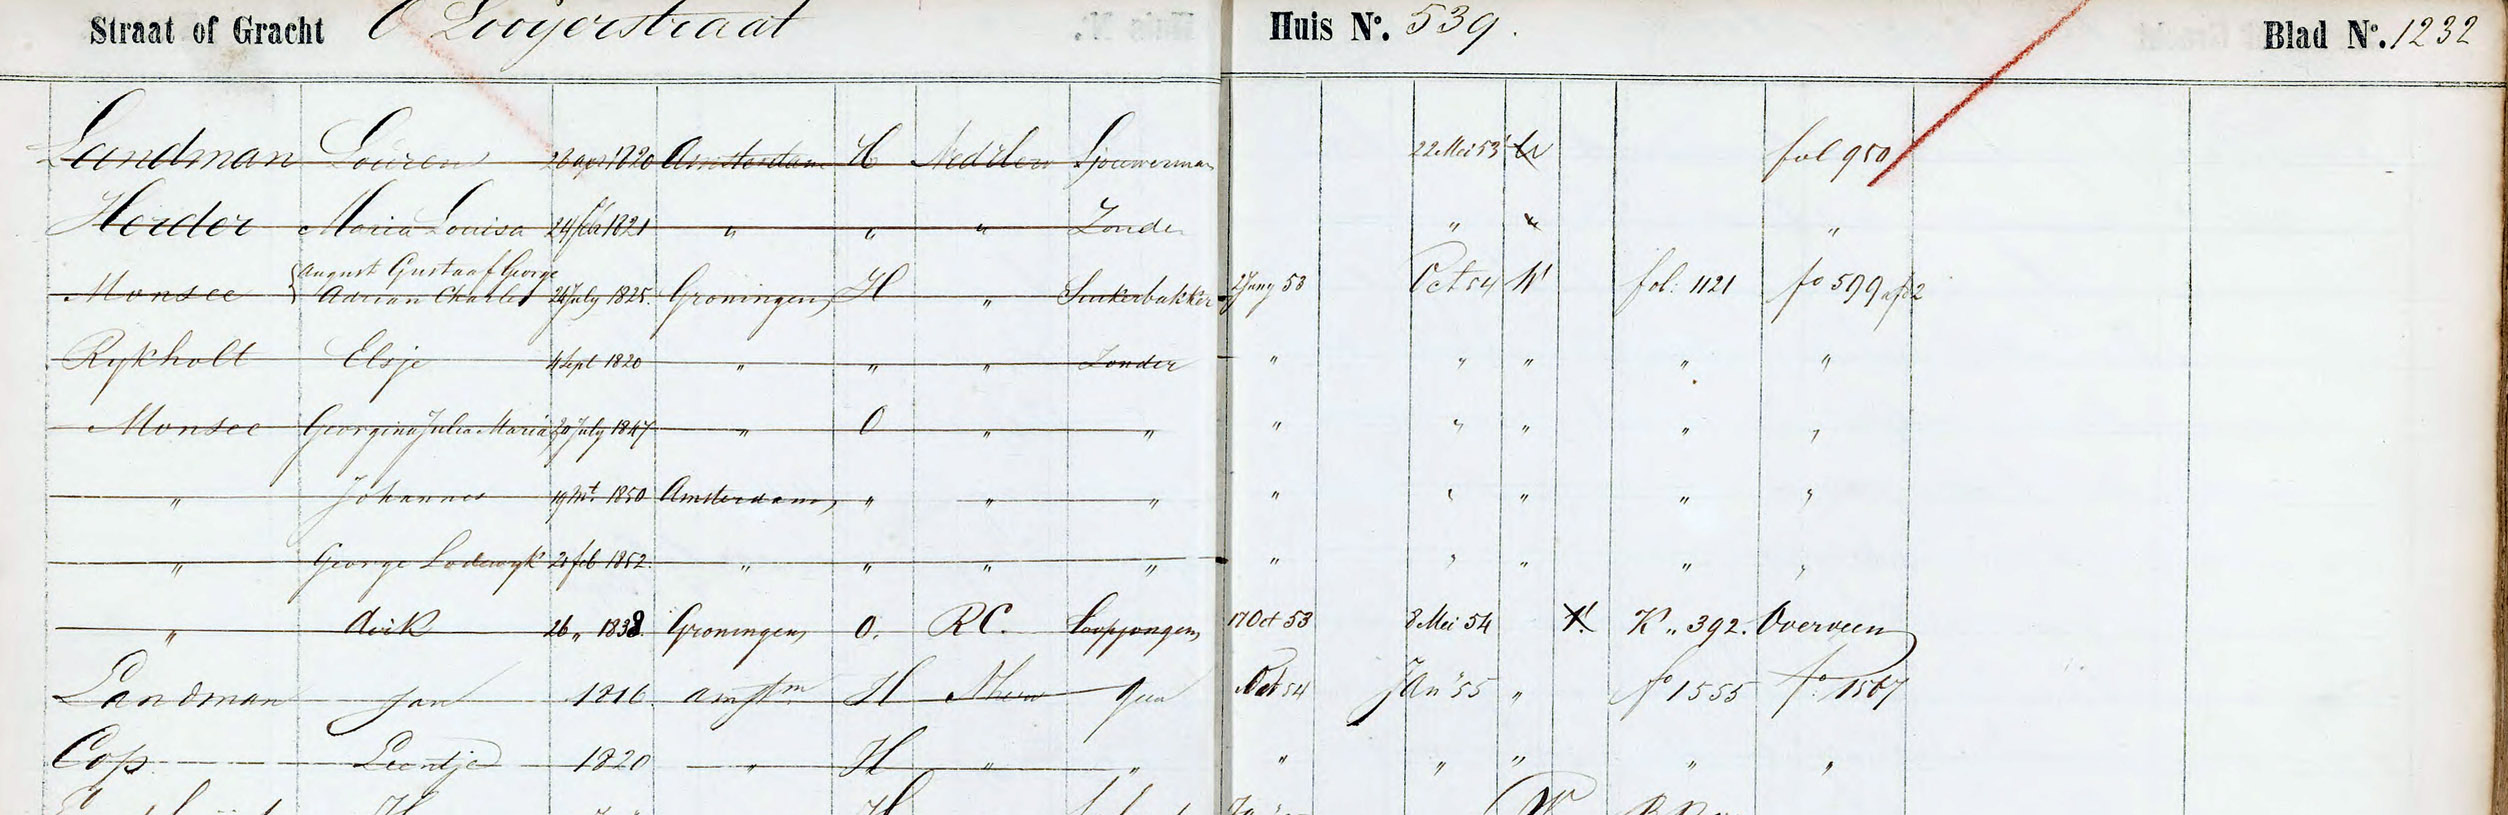 Straat of Gracht O Looyerstraat Huis No. 539. Blad No. 1232
Landman Louren 1820 Amsterdam H Ned Herv Sjouwerman 22 Mei 53 W fol 950
Herder Maria Louisa 24 feb 1821 " " " Zonder " " "
August Gustaaf George
Monsee Adrian Charles July 1825. Groningen H " Suikerbakker 2 Juny 53 Oct 54 W fol: 1121 fo 599 afd 2
Rykholt Elsje 4 Sept 1820 " " " Zonder " " " " "
Monsee Georgina Julia Maria 20 July 1847 " O " " " " " " "
" Johannes 19 1850 Amsterdam " " " " " " " "
" George Lodewyk 21 feb 1852. " " " " " " " " "
" dirk 26 " 1838. Groningen O. RC. Loopjongen 17 Oct 53 8 Mei 54 K " 392. Overveen
Landman Jan 1816. amstm H geen Oct 54 Jan '55 " fo 1555 fo 1567
Cop Leentje 1820 " H " " " " " " "